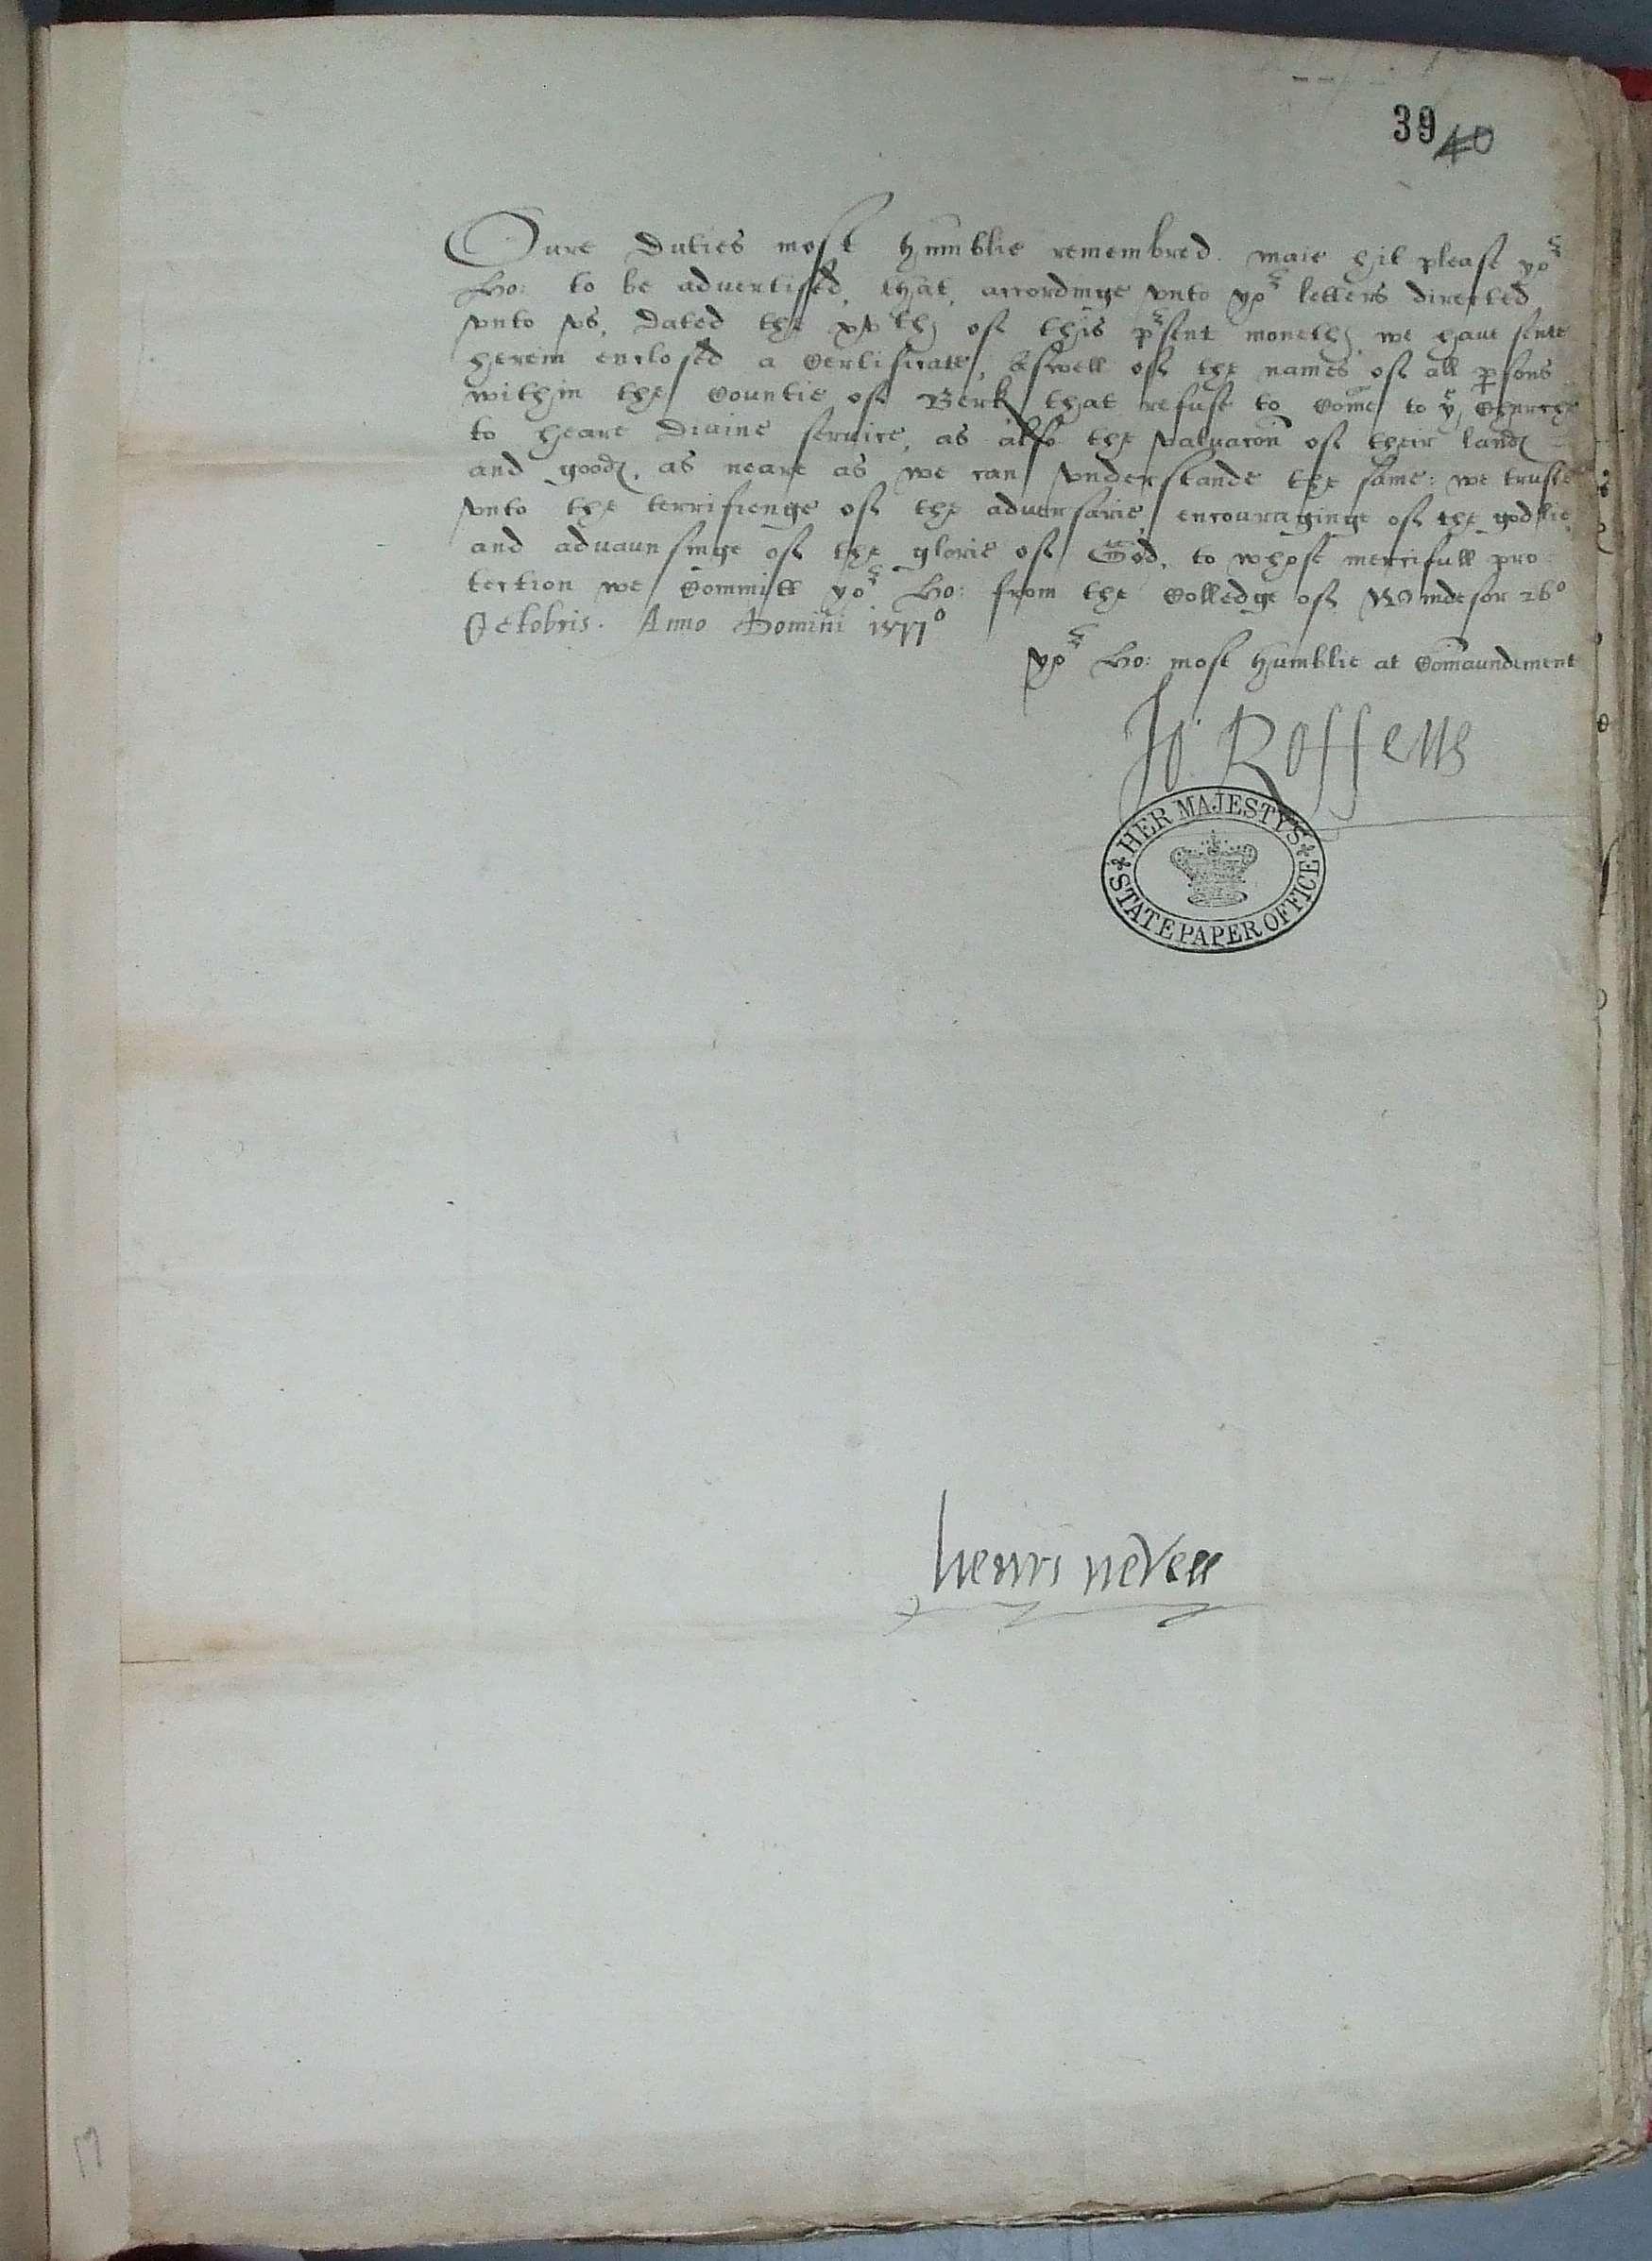 39 40
Oure duties most humblie remembred. maie hit please yor
Ho: to be aduertised, that, accordinge vnto yor letters directed
vnto vs, dated the xvth of this pͬsent moneth, we haue sente
herein enclosed a Certificate, aswell of the names of all ꝑsons
within the Countie of Berk that refuse to Come to yͤ Churche
to heare Diuine seruice, as also the valuacōn of their landꝭ
and goodꝭ, as neare as we can vnderstande the same: we truste
vnto the terrifienge of the aduersarie, encouraginge of the godlie
and aduaunsinge of the glorie of God, to whose mercifull pro=
tection we Committ yor Ho: from the Colledge of Windesor 26o
Octobris. Anno Domini 1577o
yor Ho: most humblie at Com̄aundement
Jo. Roffens
HER MAJESTY'S
STATE PAPER OFFICE
henri nevell